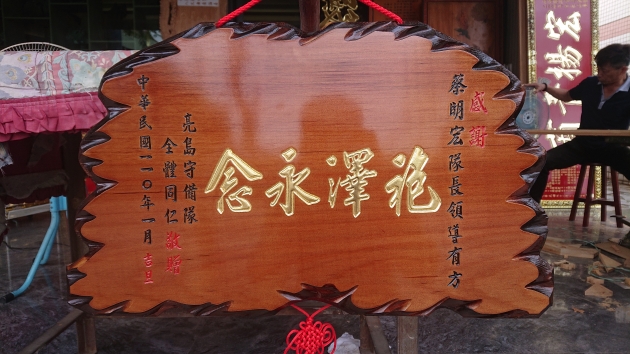 感謝
蔡明宏隊長領導有方
袍澤永念
亮島守備隊
全體同仁敬贈
中華民國一一０年一月吉旦
宏揚